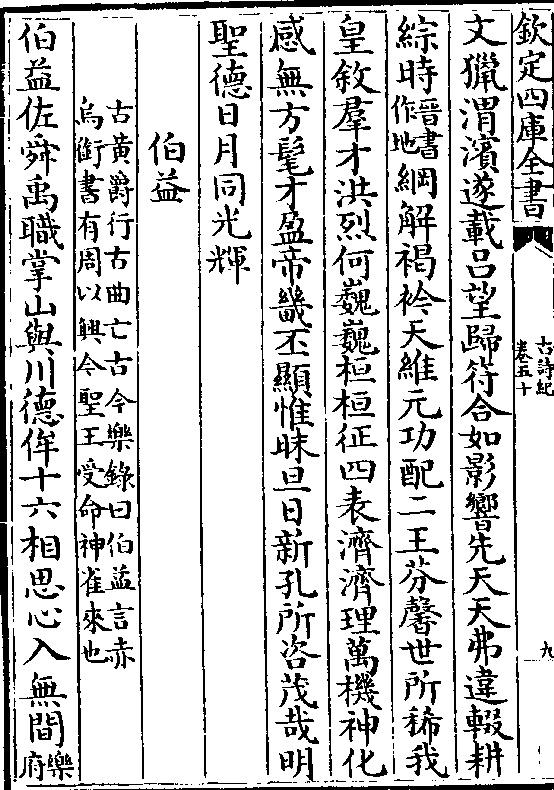 欽定四庫全書
古詩紀
卷五十
九
文獵渭濱遂載呂望歸符合如影響先天天弗違輟耕
綜時晉書作地綱解褐衿天維元功配二王芬馨世所稀我
皇敘羣才洪烈何巍巍桓桓征四表濟濟理萬機神化
感無方髦才盈帝畿丕顯惟昧旦日新孔所咨茂哉明
聖德日月同光輝
伯益
古黃爵行古曲亡古今樂錄曰伯益言赤
烏銜書有周以興今聖王受命神雀來也
伯益佐舜禹職掌山與川德侔十六相思心入無間樂府